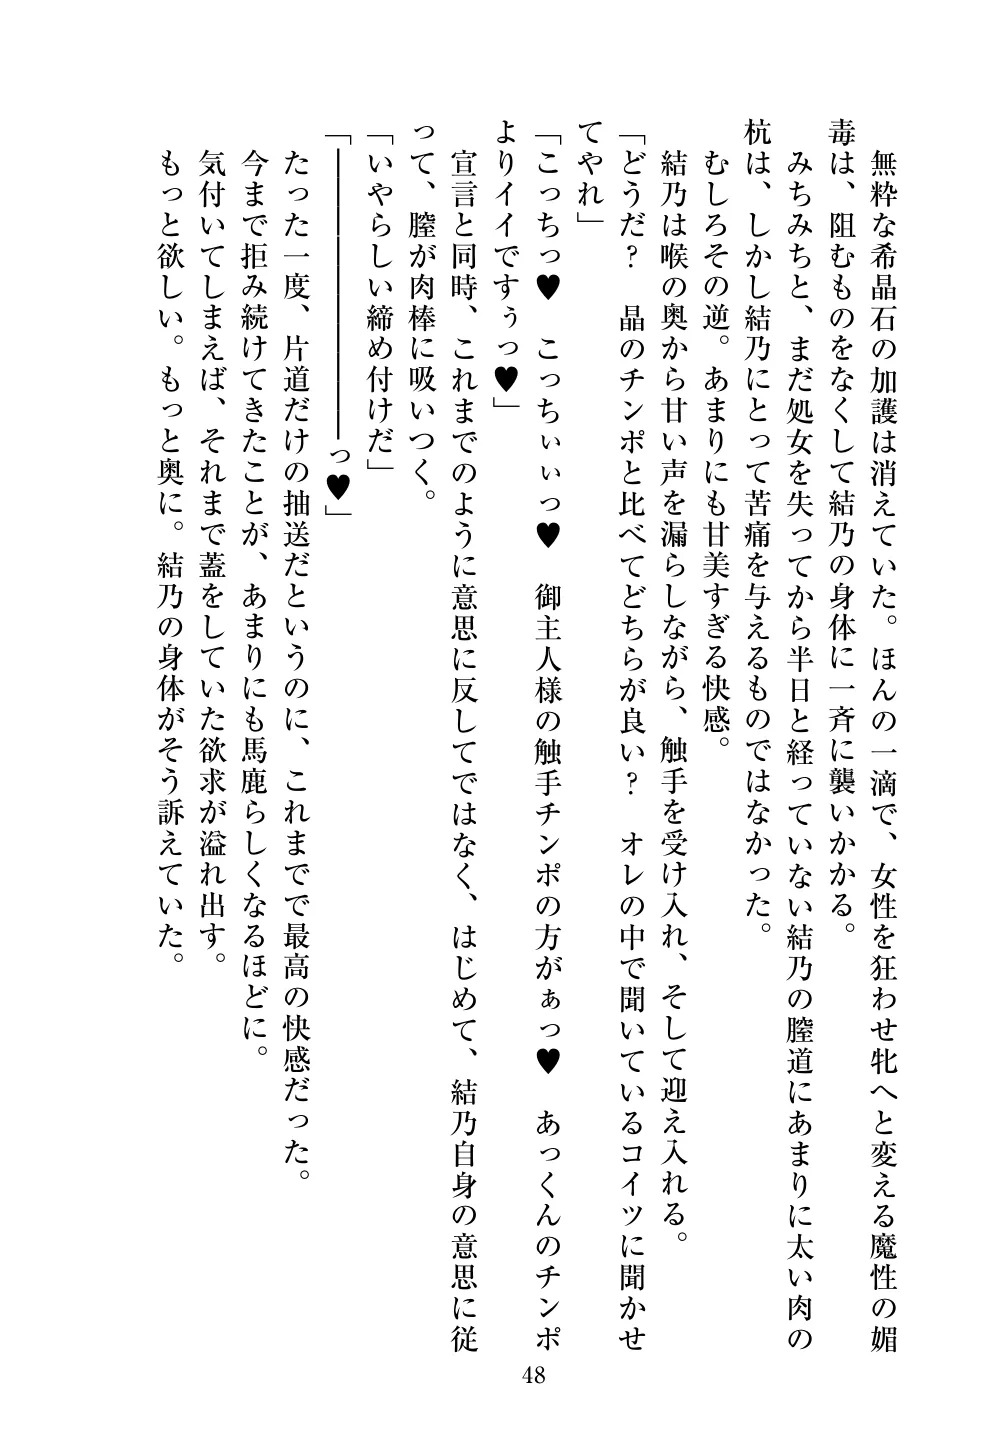 無粋な希晶石の加護は消えていた。ほんの一滴で、女性を狂わせ牝へと変える魔性の媚
毒は、阻むものをなくして結乃の身体に一斉に襲いかかる。
　みちみちと、まだ処女を失ってから半日と経っていない結乃の膣道にあまりに太い肉の
杭は、しかし結乃にとって苦痛を与えるものではなかった。
　むしろその逆。あまりにも甘美すぎる快感。
　結乃は喉の奥から甘い声を漏らしながら、触手を受け入れ、そして迎え入れる。
「どうだ？　晶のチンポと比べてどちらが良い？　オレの中で聞いているコイツに聞かせ
てやれ」
「こっちっ♥　こっちぃぃっ♥　御主人様の触手チンポの方がぁっ♥　あっくんのチンポ
よりイイですぅっ♥」
　宣言と同時、これまでのように意思に反してではなく、はじめて、結乃自身の意思に従
って、膣が肉棒に吸いつく。
「いやらしい締め付けだ」
「――――――――――っ♥」
　たった一度、片道だけの抽送だというのに、これまでで最高の快感だった。
　今まで拒み続けてきたことが、あまりにも馬鹿らしくなるほどに。
　気付いてしまえば、それまで蓋をしていた欲求が溢れ出す。
　もっと欲しい。もっと奥に。結乃の身体がそう訴えていた。
48